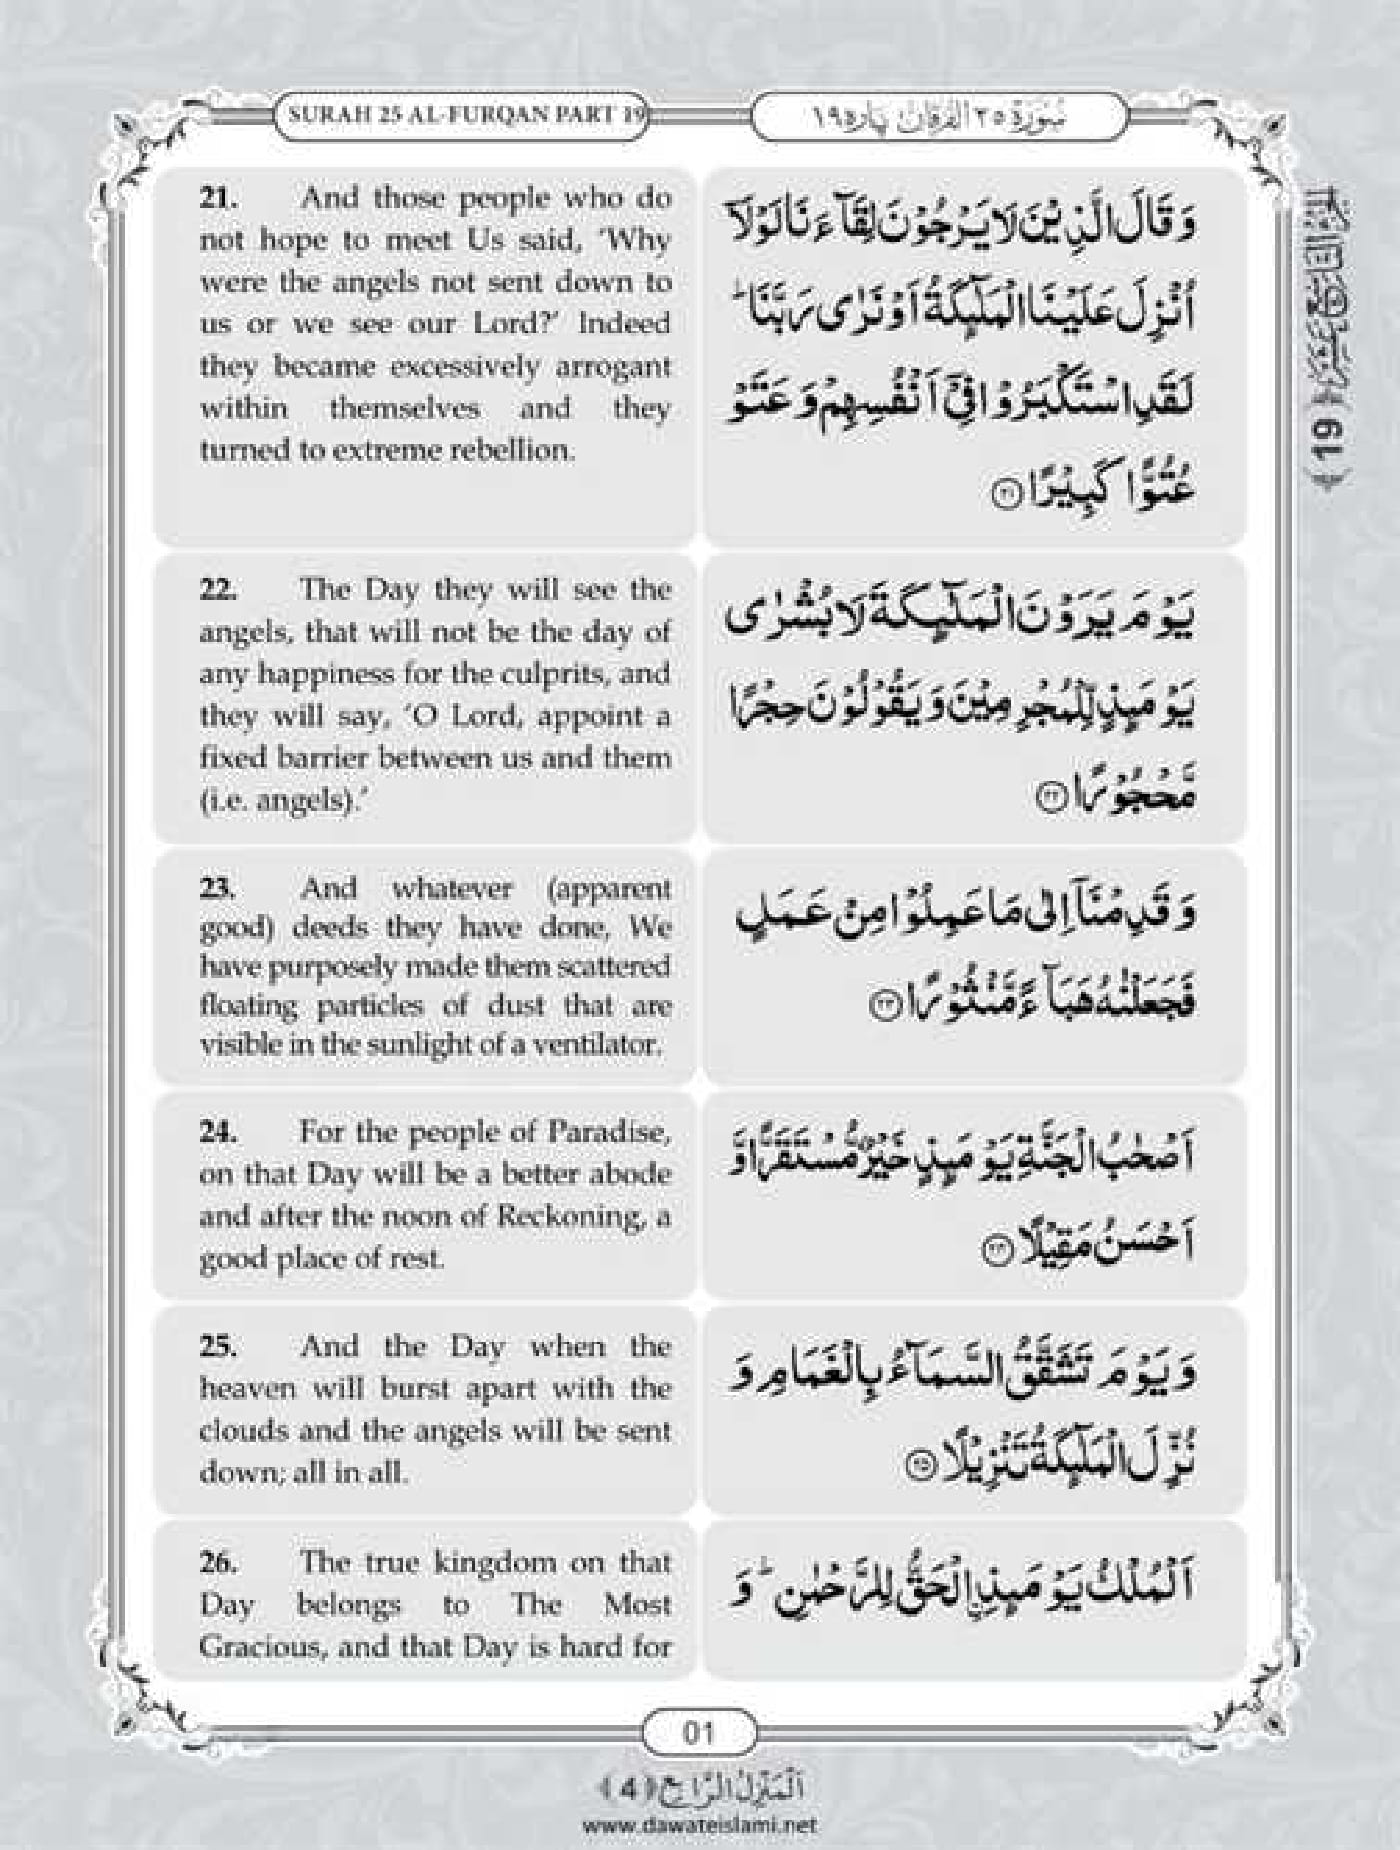 SURAH 25 AL-FURQAN PART 19
سُوْرَةُ ٢٥ اَلْفُرْقَان پاره ١٩
21. And those people who do
not hope to meet Us said, ‘Why
were the angels not sent down to
us or we see our Lord?’ Indeed
they became excessively arrogant
within themselves and they
turned to extreme rebellion.
وَ قَالَ الَّذِیْنَ لَا یَرْجُوْنَ لِقَآءَنَا لَوْلَاۤ
اُنْزِلَ عَلَیْنَا الْمَلٰٓىٕكَةُ اَوْ نَرٰى رَبَّنَاؕ
لَقَدِ اسْتَكْبَرُوْا فِیْۤ اَنْفُسِهِمْ وَ عَتَوْ
عُتُوًّا كَبِیْرًا ﴿۲۱﴾
22. The Day they will see the
angels, that will not be the day of
any happiness for the culprits, and
they will say, ‘O Lord, appoint a
fixed barrier between us and them
(i.e. angels).’
یَوْمَ یَرَوْنَ الْمَلٰٓىٕكَةَ لَا بُشْرٰى
یَوْمَىٕذٍ لِّلْمُجْرِمِیْنَ وَ یَقُوْلُوْنَ حِجْرًا
مَّحْجُوْرًا ﴿۲۲﴾
23. And whatever (apparent
good) deeds they have done, We
have purposely made them scattered
floating particles of dust that are
visible in the sunlight of a ventilator.
وَ قَدِمْنَاۤ اِلٰى مَا عَمِلُوْا مِنْ عَمَلٍ
فَجَعَلْنٰهُ هَبَآءً مَّنْثُوْرًا ﴿۲۳﴾
24. For the people of Paradise,
on that Day will be a better abode
and after the noon of Reckoning, a
good place of rest.
اَصْحٰبُ الْجَنَّةِ یَوْمَىٕذٍ خَیْرٌ مُّسْتَقَرًّا وَّ
اَحْسَنُ مَقِیْلًا ﴿۲۴﴾
25. And the Day when the
heaven will burst apart with the
clouds and the angels will be sent
down; all in all.
وَ یَوْمَ تَشَقَّقُ السَّمَآءُ بِالْغَمَامِ وَ
نُزِّلَ الْمَلٰٓىٕكَةُ تَنْزِیْلًا ﴿۲۵﴾
26. The true kingdom on that
Day belongs to The Most
Gracious, and that Day is hard for
اَلْمُلْكُ یَوْمَىٕذِ ﹰالْحَقُّ لِلرَّحْمٰنِؕ وَ
19
01
اَلْمَنْزِلُ الرَّابِع ﴿4﴾
www.dawateislami.net